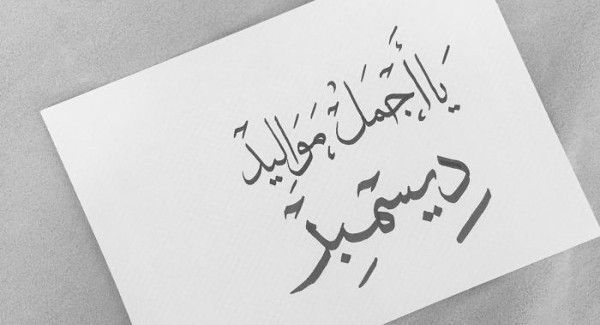 يَا أَجْمَل مَوَالِيد
دِيسَمْبِر